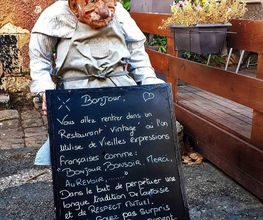 Bonjour,
Vous allez rentrer dans un
Restaurant "vintage" où l'on
Utilise de Vieilles expressions
Françaises comme :
"Bonjour, Bonsoir, Merci,
Au Revoir, .......
Dans le but de perpétuer une
longue tradition de Courtoisie
et de Respect Mutuel.
pas surpris